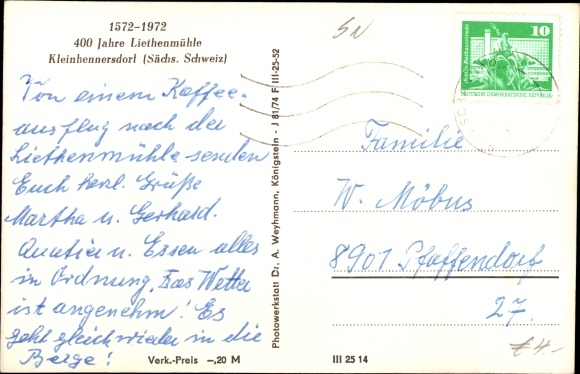 1572-1972
400 Jahre Liethenmühle
Kleinhennersdorf (Sächs. Schweiz)
Von einem Kaffee-
ausflug nach der
Liethenmühle senden
Euch herzl. Grüße
Martha u. Gerhard.
Quartier u. Essen alles
in Ordnung. Das Wetter
ist angenehm! Es
geht gleich wieder in die
Berge!
Verk.-Preis -,20 M
Photowerkstatt Dr. A. Weyhmann, Königstein - J 81/74 F III-25-52
10
DEUTSCHE DEMOKRATISCHE REPUBLIK
Familie
W. Möbus
8901 Pfaffendorf
27.
III 25 14
€ 4.-